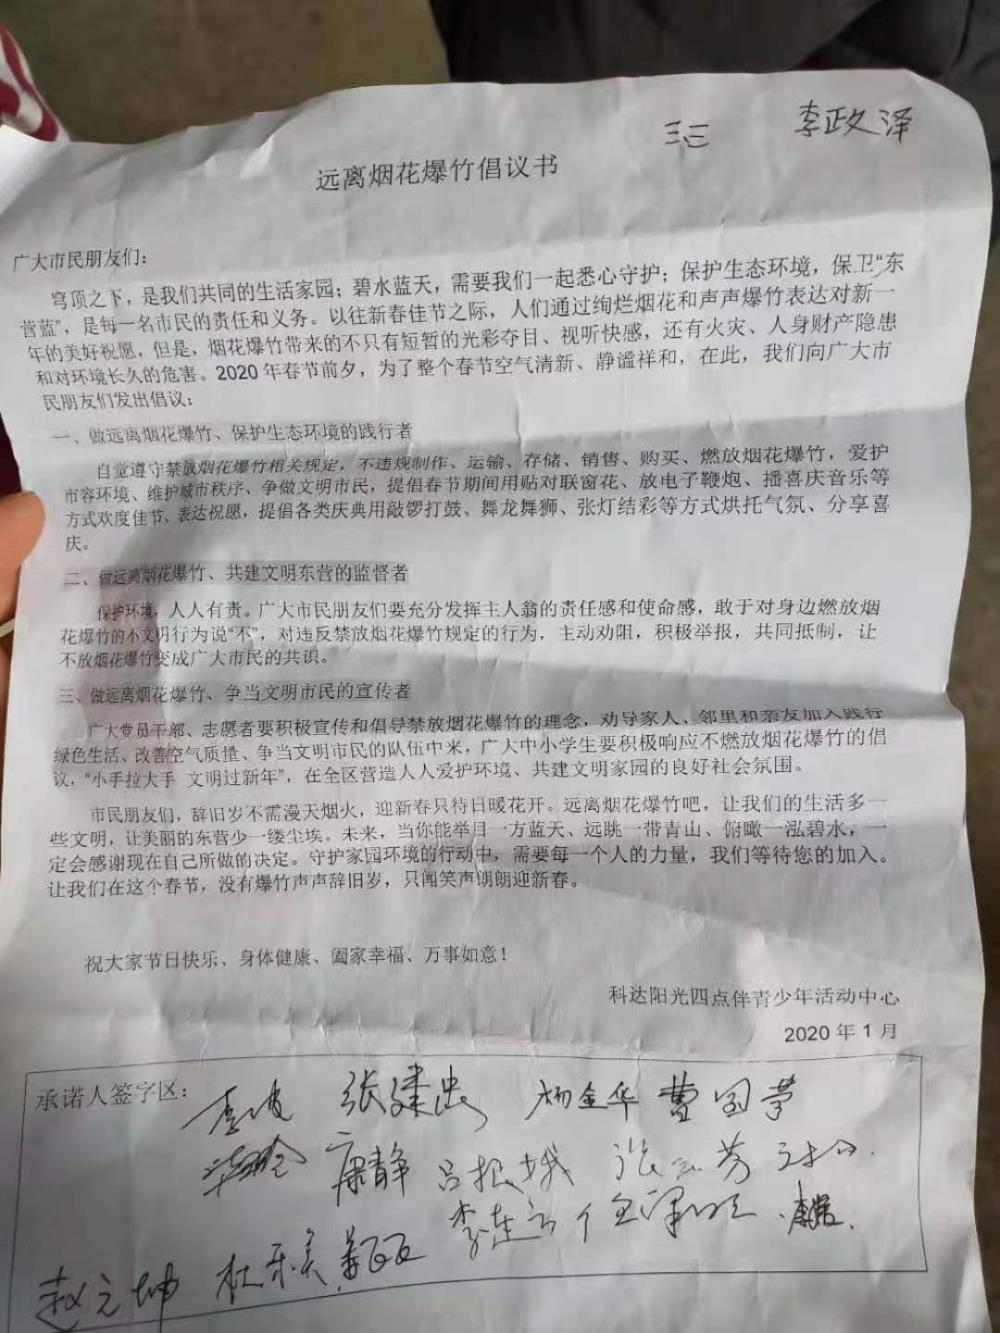 三三 李政泽
远离烟花爆竹倡议书
广大市民朋友们：
穹顶之下，是我们共同的生活家园；碧水蓝天，需要我们一起悉心守护；保护生态环境，保卫“东
营蓝”，是每一名市民的责任和义务。以往新春佳节之际，人们通过绚烂烟花和声声爆竹表达对新一
年的美好祝愿，但是，烟花爆竹带来的不只有短暂的光彩夺目、视听快感，还有火灾、人身财产隐患
和对环境长久的危害。2020 年春节前夕，为了整个春节空气清新、静谧祥和，在此，我们向广大市
民朋友们发出倡议：
一、做远离烟花爆竹、保护生态环境的践行者
自觉遵守禁放烟花爆竹相关规定，不违规制作、运输、存储、销售、购买、燃放烟花爆竹，爱护
市容环境、维护城市秩序、争做文明市民，提倡春节期间用贴对联窗花、放电子鞭炮、播喜庆音乐等
方式欢度佳节、表达祝愿，提倡各类庆典用敲锣打鼓、舞龙舞狮、张灯结彩等方式烘托气氛、分享喜
庆。
二、做远离烟花爆竹、共建文明东营的监督者
保护环境，人人有责。广大市民朋友们要充分发挥主人翁的责任感和使命感，敢于对身边燃放烟
花爆竹的不文明行为说“不”，对违反禁放烟花爆竹规定的行为，主动劝阻，积极举报，共同抵制，让
不放烟花爆竹变成广大市民的共识。
三、做远离烟花爆竹、争当文明市民的宣传者
广大党员干部、志愿者要积极宣传和倡导禁放烟花爆竹的理念，劝导家人、邻里和亲友加入践行
绿色生活、改善空气质量、争当文明市民的队伍中来，广大中小学生要积极响应不燃放烟花爆竹的倡
议，“小手拉大手 文明过新年”，在全区营造人人爱护环境、共建文明家园的良好社会氛围。
市民朋友们，辞旧岁不需漫天烟火，迎新春只待日暖花开。远离烟花爆竹吧，让我们的生活多一
些文明，让美丽的东营少一缕尘埃。未来，当你能举目一方蓝天、远眺一带青山、俯瞰一泓碧水，一
定会感谢现在自己所做的决定。守护家园环境的行动中，需要每一个人的力量，我们等待您的加入。
让我们在这个春节，没有爆竹声声辞旧岁，只闻笑声朗朗迎新春。
祝大家节日快乐、身体健康、阖家幸福、万事如意！
科达阳光四点伴青少年活动中心
2020 年 1 月
承诺人签字区： 张建忠 杨金华 曹国梦
康静 吕振娥
赵元坤